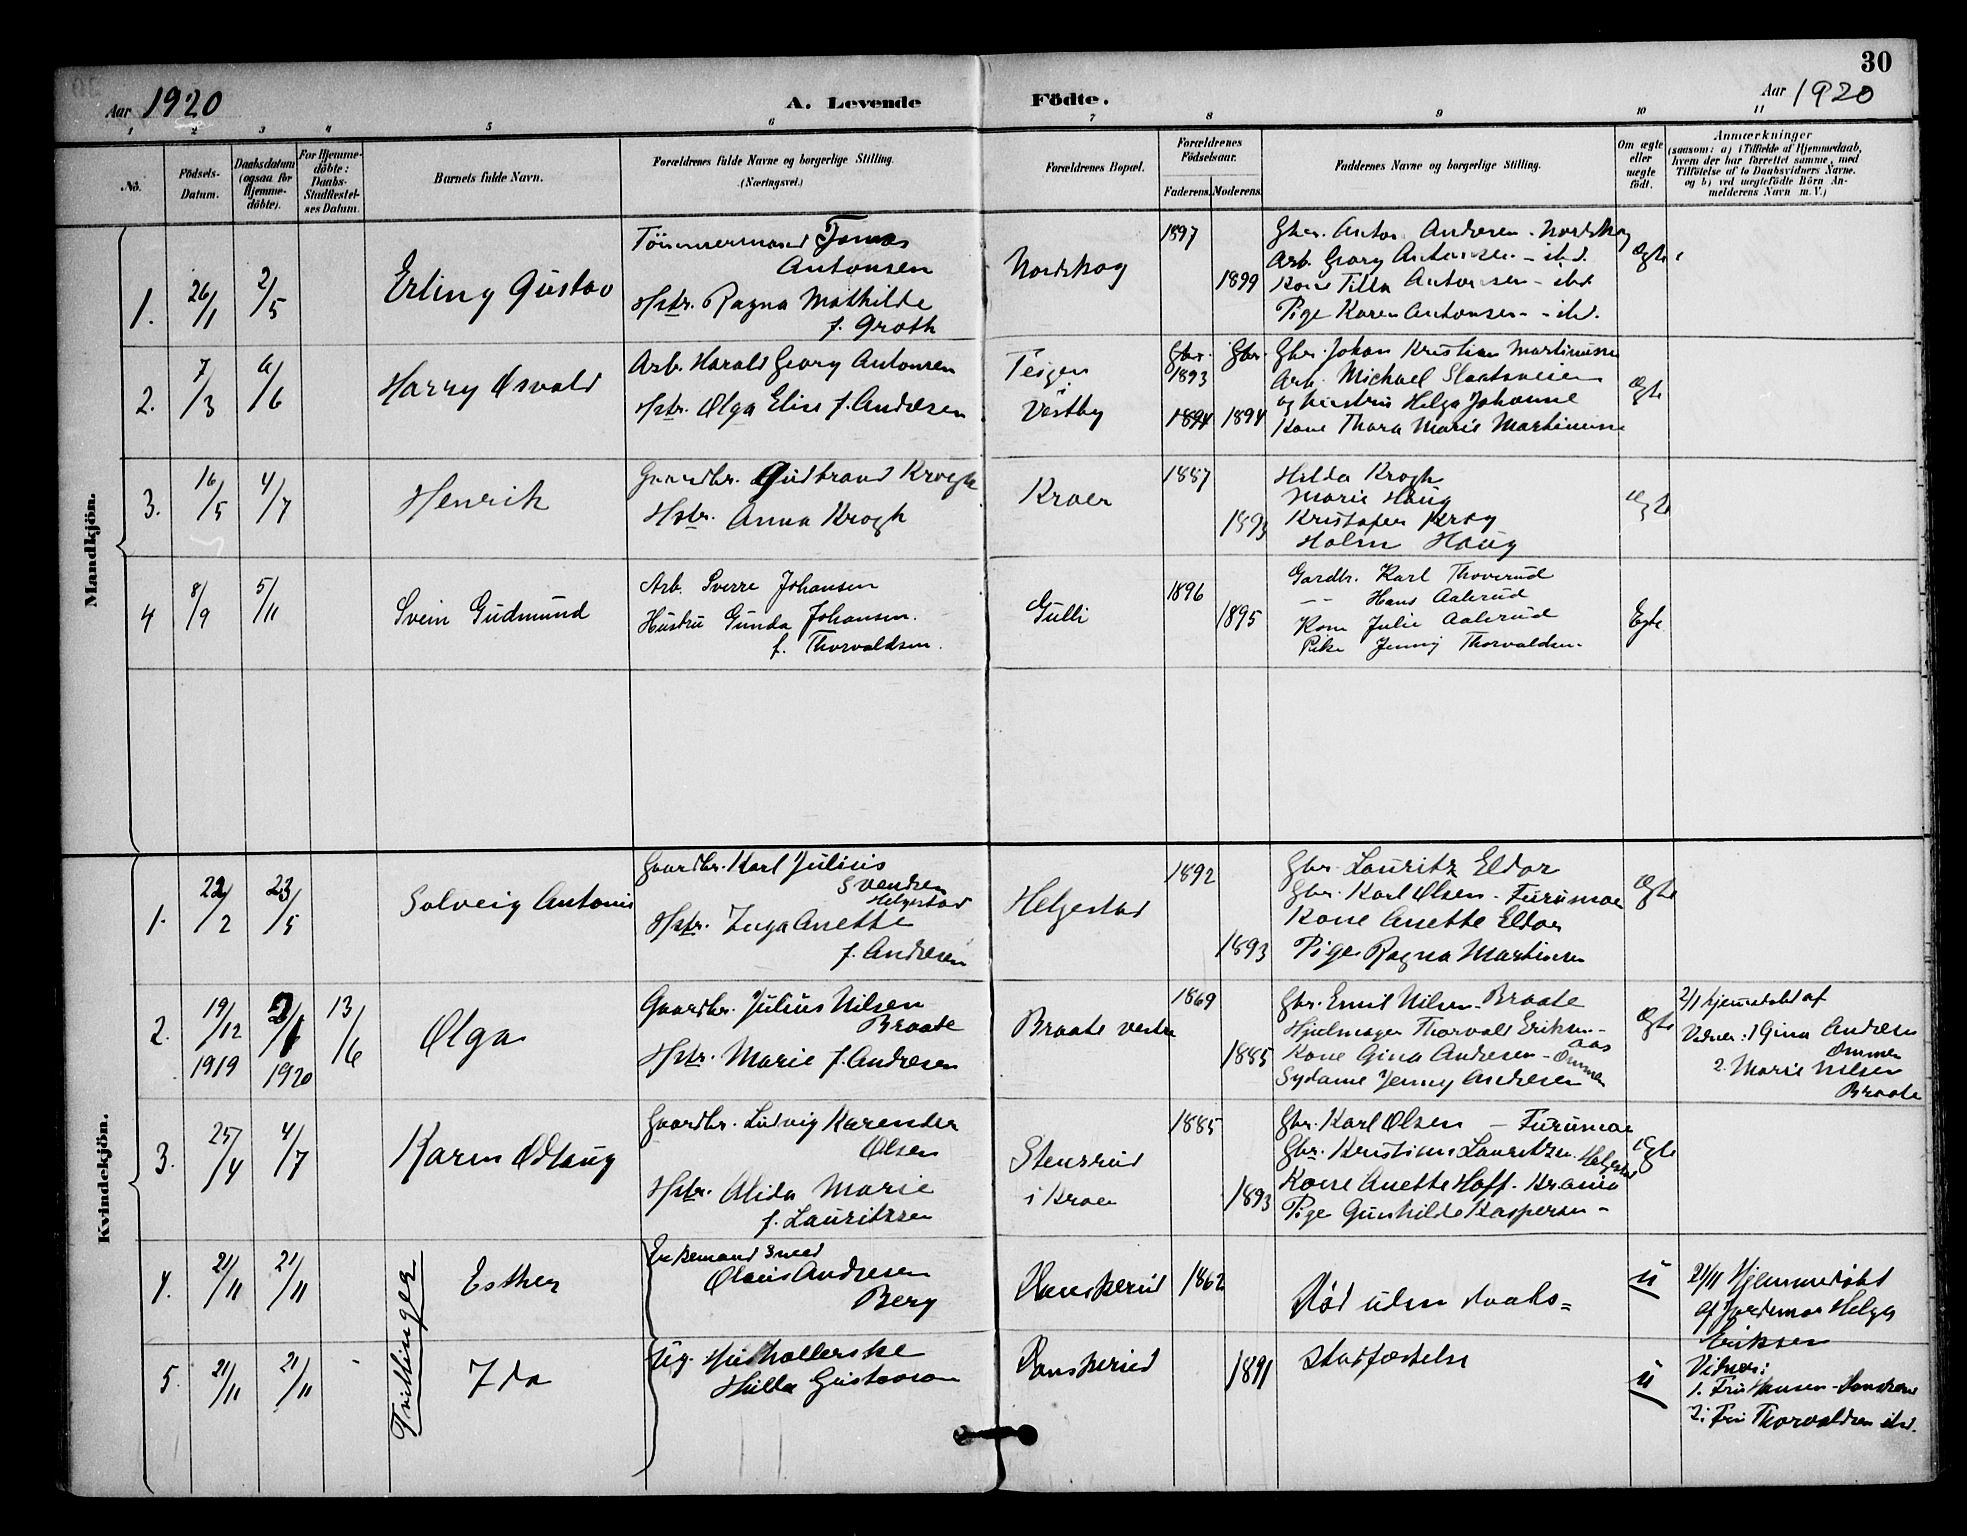 30
Aar 1920
A. Levende Födte.
Aar 1920
1 2 3 4 5 6 7 8 9 10 11
No.
Födsels-
Datum.
Daabsdatum
(ogsaa for
Hjemme-
döbte).
For Hjemme-
döbte:
Daabs-
Stadfæstel-
ses Datum.
Barnets fulde Navn.
Forældrenes fulde Navne og borgerlige Stilling.
(Næringsvei.)
Forældrenes Bopæl.
Forældrenes
Födselsaar.
Faderens. Moderens.
Faddernes Navne og borgerlige Stilling.
Om ægte
eller
uægte
födt.
Anmærkninger
(saasom: a) i Tilfælde af Hjemmedaab,
hvem der har forrettet samme, med
Tilföielse af to Daabsvidners Navne.
og b) ved uægtefödte Börn An-
melderens Navn m. V.)
Mandkjön.
1.
26/1
2/5
Erling Gustav
Tömmermand Tomas
Antonsen
Hstr. Ragna Mathilde
f. Groth
Nordskog
1897
1899
Gbr. Anton Andresen - Nordskog
Arb. Georg Antonsen - ibd.
Kone Tilla Antonsen - ibd.
Pige Karen Antonsen - ibd.
Ægte
2.
7/3
6/6
Harry Osvald
Arb. Harald Georg Antonsen
Hstr. Olga Elise f. Andresen
Teigen
i
Vestby
Gbr. Gbr.
1893
1894 1894
Gbr. Johan Kristian Martinusse
Arb. Michael Slaatsveien
og hustru Helga Johanne
Kone Thora Marie Martinusse
Ægte
3.
16/5
4/7
Henrik
Gaardbr. Gudbrand Krogh
Hstr. Anna Krogh
Kroer
1887
1893
Hilda Krogh
Marie Haug
Kristofer Krog
Holm Haug
Ægte
4
8/9
5/11
Svein Gudmund
Arb. Sverre Johansen
Hustru Gunda Johansen.
f. Thorvaldsen.
Gulli
1896
1895
Gardbr. Karl Thoverud
-- Hans Aalerud
Kone Julie Aalerud
Pike Jenny Thorvaldsen.
Egte
Kvindekjön.
1.
22/2
23/5
Solveig Antonie
Gaardbr. Karl Julius
Svendsen
Helgestad
Hstr. Inga Anette
f. Andresen
Helgestad
1892
1893
Gbr. Lauritz Eldor
Gbr. Karl Olsen - Furumoe
Kone Anette Eldor
Pige Ragna Martinsen
Ægte
2.
19/12
1919
2/1
1920
13/6
Olga
Gaardbr. Julius Nilsen
Braate
Hstr. Marie f. Andresen
Braate vestre
1869
1885
Gbr. Emil Nilsen - Braate
Hjulmager Thorvald Eriksen -
Aas
Kone Gina Andresen - Ommen
Sydame Jenny Andresen
Ægte
2/1 hjemmedøbt af
Vidner: 1 Gina Andresen
Ommen
2. Marie Nilsen
Braate
3.
25/4
4/7
Karen Odlaug
Gaardbr. Ludvig Karender
Olsen
Hstr. Alida Marie
f. Lauritzsen
Stensrud
i Kroer
1885
1893
Gbr. Karl Olsen - Furumoe
Gbr. Kristian Lauritzsen. Helgestad
Kone Anette Hoff - Krania
Pige Gunhilde Kaspersen -
Ægte
Tvillinger
4.
21/11
21/11
Esther
Enkemand Smed
Olaus Andresen
Berg
Danskerud
1862
Død uden daabs=
u
21/11 Hjemmedøbt
af Jordemor Helga
Eriksen
5.
21/11
21/11
-
Ida
Ug. Husholderske
Hilda Gustavson
Danskerud
1891
stadfæstelse
u
Vidner:
1. Fru Hansen - Danskerud
2. Fru Thorvaldsen ibd.